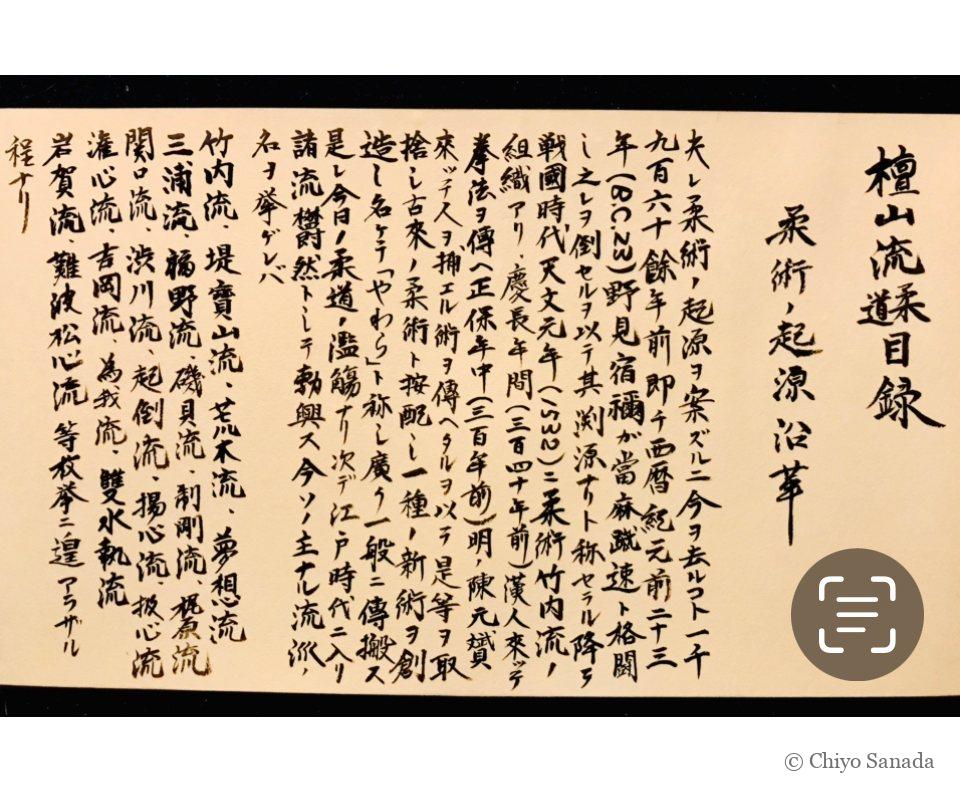 檀山流柔道目録
柔術ノ起源沿革
夫レ柔術ノ起源ヲ案ズルニ今ヲ去ルコト一千
九百六十餘年前即チ西暦紀元前二十三
年(B.C.23)野見宿禰が當麻蹴速ト格闘
シ之レヲ倒セルヲ以テ其渕源ナリト称セラル降ッテ
戦國時代天文元年(1532)ニ柔術竹内流ノ
組織アリ、慶長年間(三百四十年前)漢人來ッテ
拳法ヲ傳ヘ正保年中(三百年前)明ノ陳元贇
來ッテ人ヲ捕エル術ヲ傳ヘタルヲ以テ是等ヲ取
捨シ古來ノ柔術ト按配シ一種ノ新術ヲ創
造シ名ケテ「やわら」ト称シ廣ク一般ニ傳搬ス
是レ今日ノ柔道ノ濫觴ナリ次デ江戸時代ニ入リ
諸流欝然トシテ勃興ス今ソノ主ナル流派ノ
名ヲ挙ゲレバ
竹内流、堤寶山流、荒木流、夢想流
三浦流、福野流、磯貝流、制剛流、梶原流
関口流、渋川流、起倒流、揚心流、扱心流
灌心流、吉岡流、為我流、雙水執流
岩賀流、難波松心流等枚挙ニ遑アラザル
程ナリ
© Chiyo Sanada